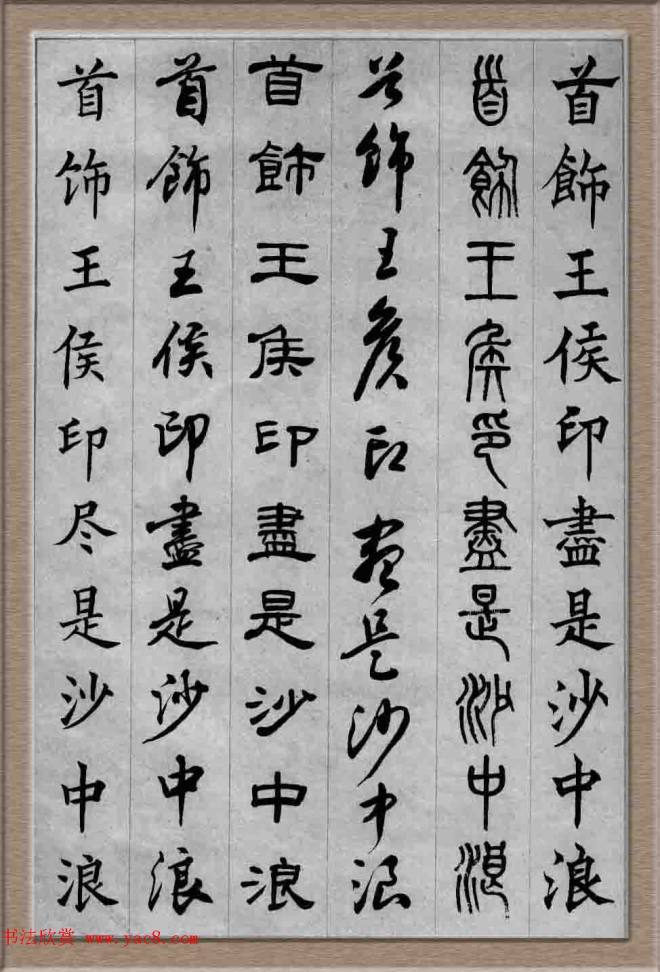 首飾王侯印盡是沙中浪
首飾王侯印盡是沙中浪
首飾王侯印盡是沙中浪
首飾王侯印盡是沙中浪
首飾王侯印盡是沙中浪
首饰王侯印尽是沙中浪
书法欣赏 www.yac8.com